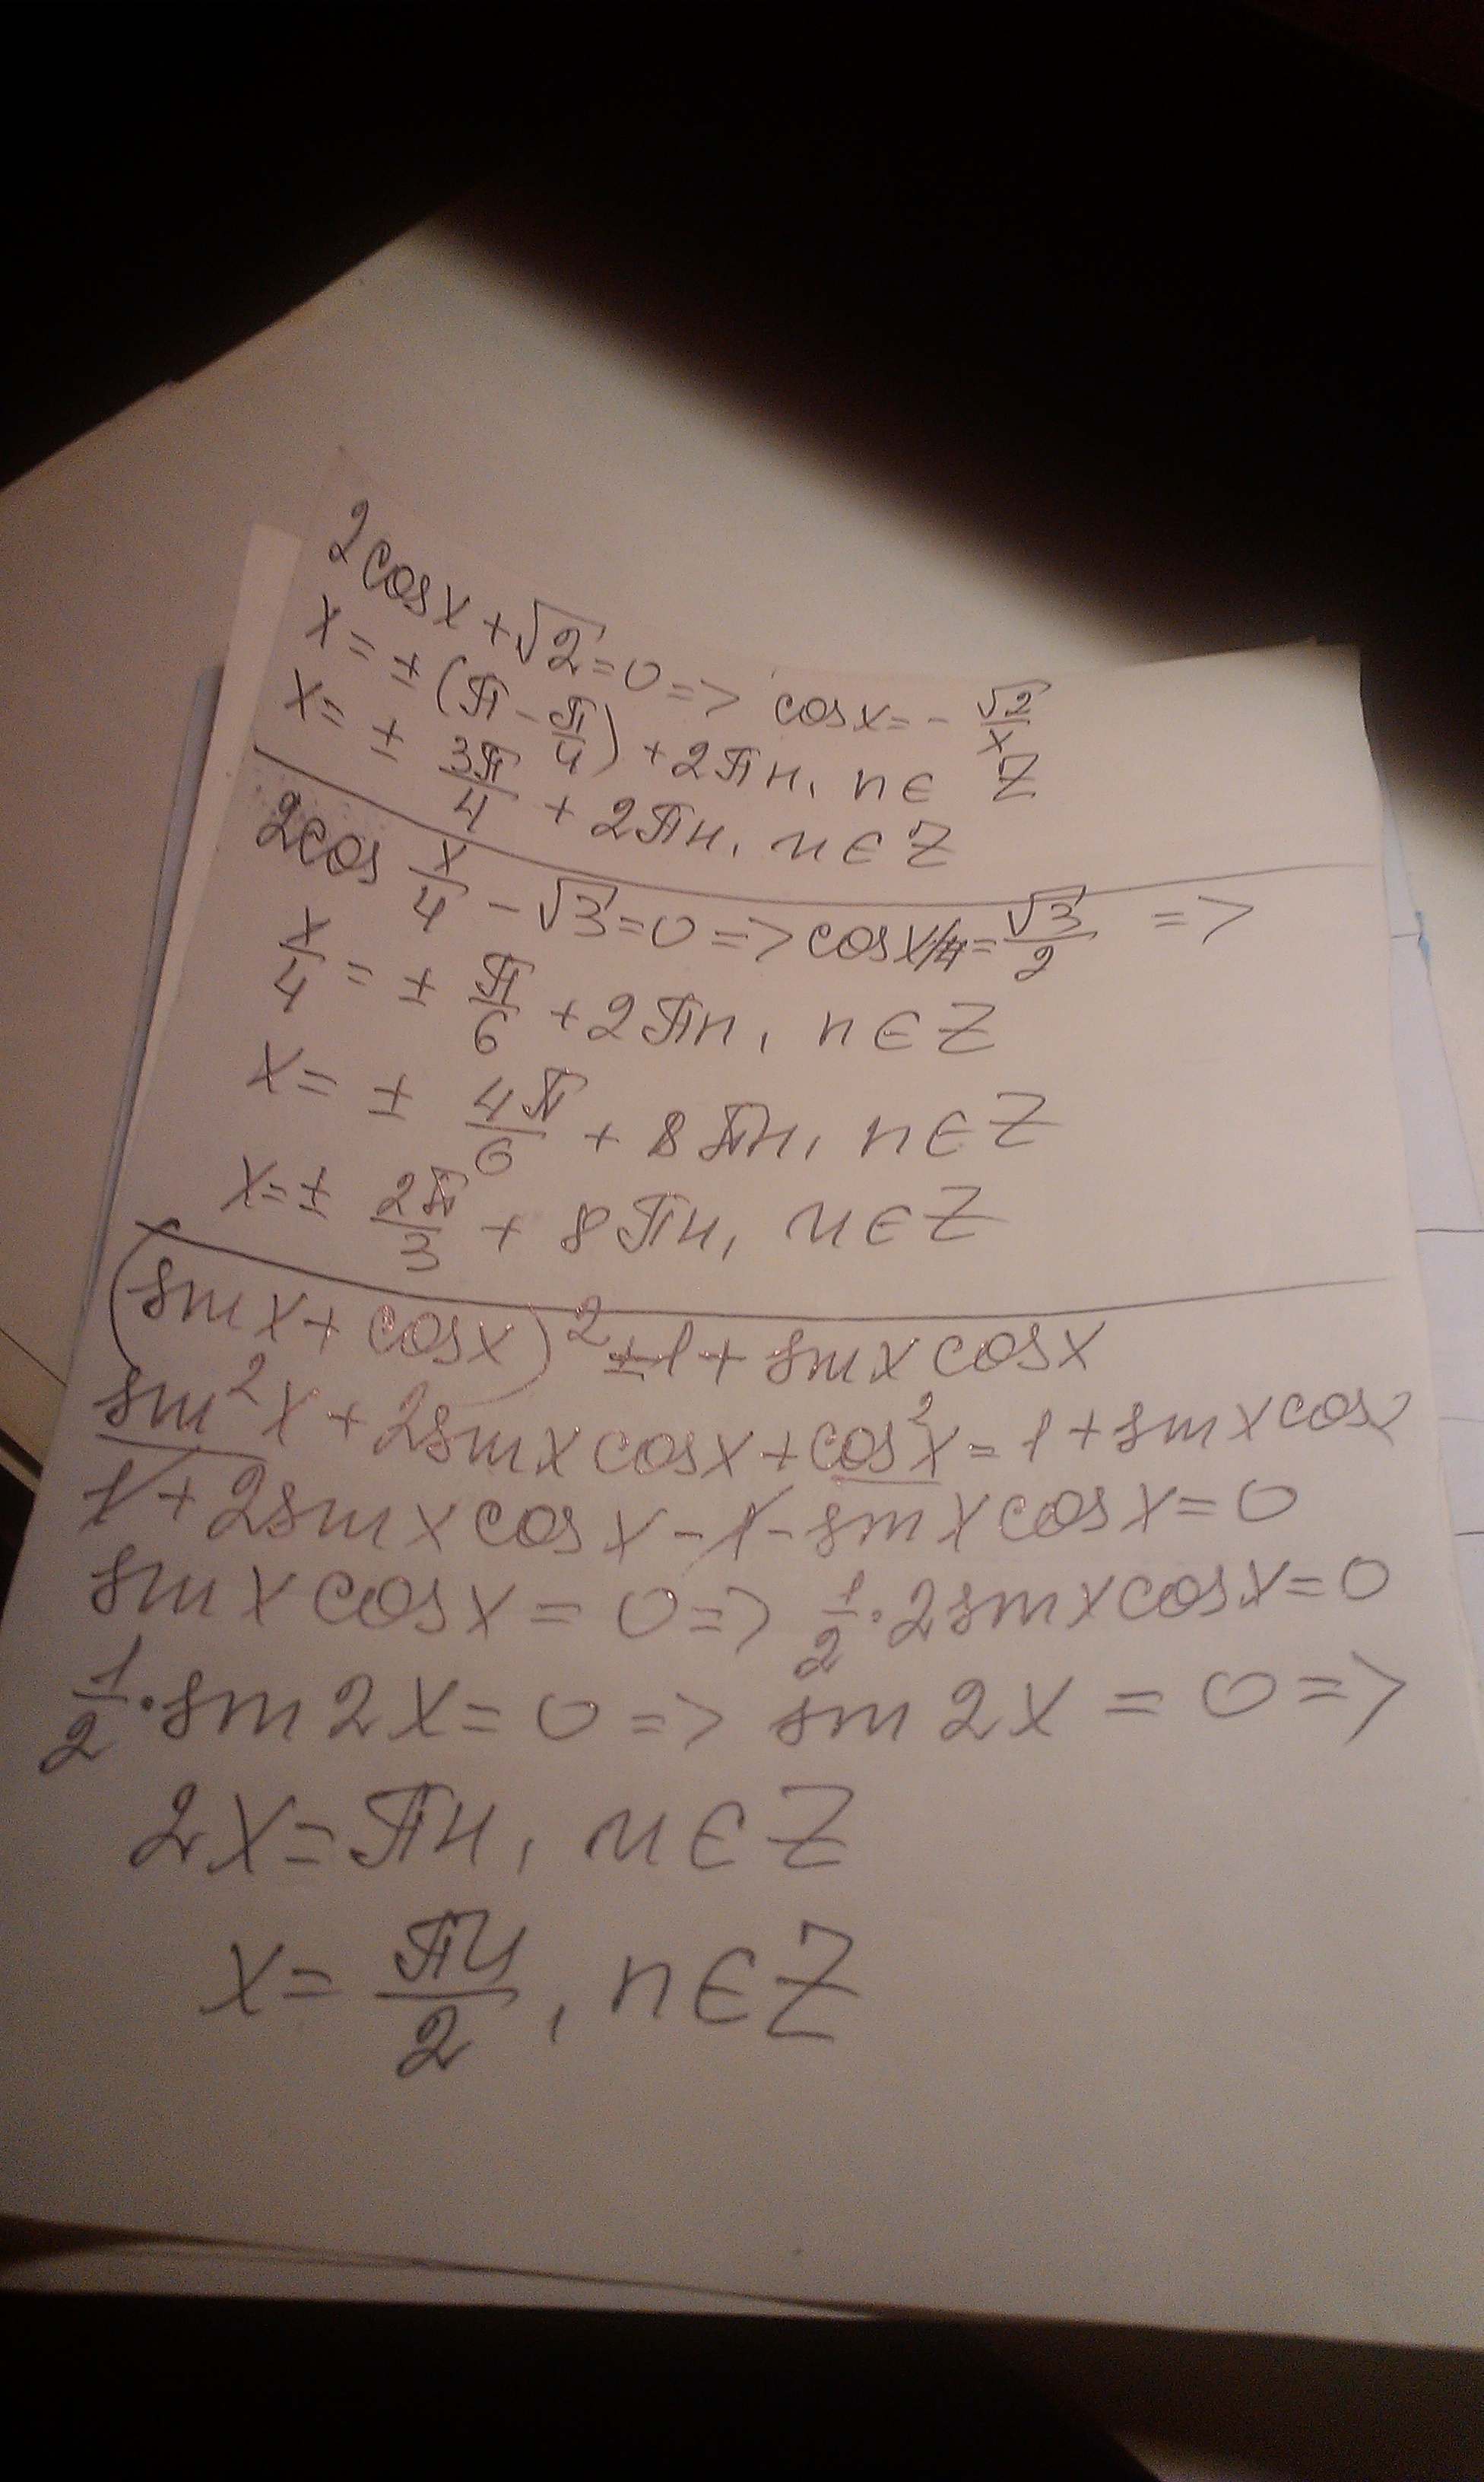 2cosx + √2 = 0 => cosx = - √2/x
x = ± (π - π/4) + 2πn, n ∈ Z
x = ± 3π/4 + 2πn, n ∈ Z
2cos x/4 - √3 = 0 => cos x/4 = √3/2 =>
x/4 = ± π/6 + 2πn, n ∈ Z
x = ± 4π/6 + 8πn, n ∈ Z
x = ± 2π/3 + 8πn, n ∈ Z
(sin x + cosx)² = 1 + sin x cosx
sin²x + 2sin x cosx + cos²x = 1 + sin x cosx
1 + 2sin x cosx - 1 - sin x cosx = 0
sin x cosx = 0 => 1/2 · 2sin x cosx = 0
1/2 · sin 2x = 0 => sin 2x = 0 =>
2x = πn, n ∈ Z
x = πn/2, n ∈ Z